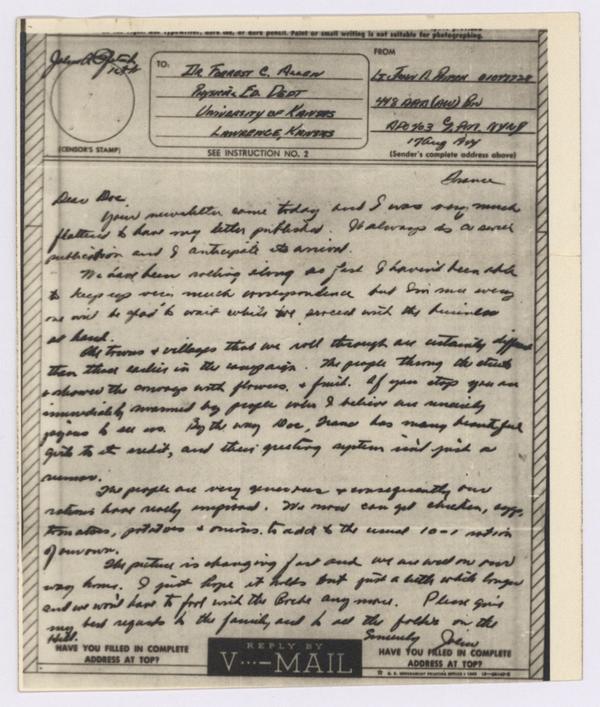 or dark pencil. Paint or small writing is not suitable for photographing.
TO:
FROM
Dr Forrest C. Allen
Lt. John R.
Physical Ed. Dept
448 AAA (AW) Bn
University of Kansas
APO 403 % P.M. NYNY
Lawrence, Kansas
17 Aug
(CENSOR'S STAMP)
SEE INSTRUCTION NO. 2
(Sender's complete address above)
France
Dear Doc
Your newsletter came today and I was very much
flattered to have my letter published. It always is a swell
publication and I anticipate its arrival.
We have been rolling along so fast I haven't been able
to keep up very much correspondence but I'm sure every
one will be glad to wait while we proceed with the business
at hand.
The towns & villages that we roll through are certainly different
than those earlier in the campaign. The people throng the streets
& shower the convoys with flowers & fruit. If you stop you are
immediately swarmed by people who I believe are sincerely
joyous to see us. By the way Doc, France has many beautiful
girls to its credit, and their greeting system isn't just a
rumor.
The people are very generous & consequently our
rations have really improved. We now can get chicken, eggs,
tomatoes, potatoes & onions to add to the usual 10-1 ration
of our own.
The picture is changing fast and we are well on our
way home. I just hope it holds but just a little while longer
and we won't have to fool with the Boche any more. Please give
my best regards to the family and to all the folks on the
Hill.
Sincerely John
HAVE YOU FILLED IN COMPLETE
ADDRESS AT TOP?
REPLY BY
V···—MAIL
HAVE YOU FILLED IN COMPLETE
ADDRESS AT TOP?